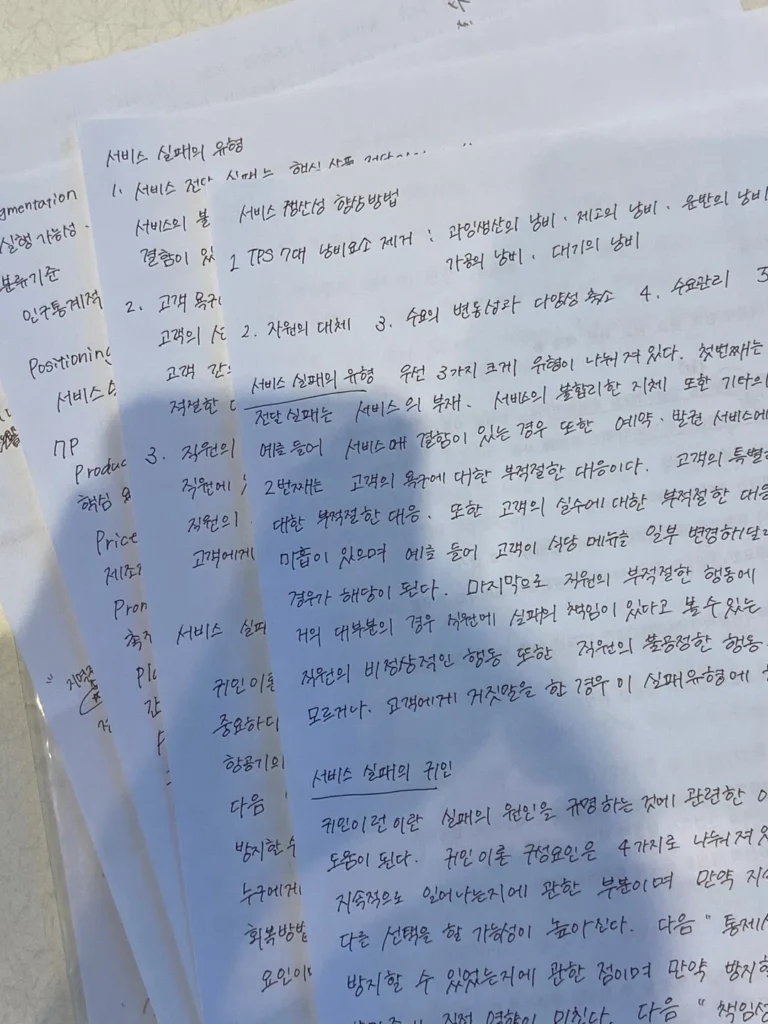 서비스 실패의 유형
1. 서비스 전달 실패는 핵심
서비스의 불
결함이 있
2. 고객 욕구
고객의
고객
적절한
3. 직원의
직원에
직원의
고객에게
서비스 실패
귀인이론
중요하다
항공기의
다음 "
방지할 수
누구에게
회복방법
요인이
gmentation
실행 가능성
분류기준
인구통계적
Positioning
서비스
7P
Produc
핵심
Price
제조
Prom
촉
Pla
서비스 생산성 향상방법
1 TPS 7대 낭비요소 제거 : 과잉생산의 낭비. 재고의 낭비. 운반의 낭비
가공의 낭비. 대기의 낭비
2. 자원의 대체 3. 수요의 변동성과 다양성 축소 4. 수요관리
서비스 실패의 유형 우선 3가지 크게 유형이 나눠져있다. 첫번째는
전달실패는 서비스의 부재. 서비스의 불합리한 지체 또한 기타의
예를 들어 서비스에 결함이 있는 경우 또한 예약·발권 서비스에
2번째는 고객의 욕구에 대한 부적절한 대응이다. 고객의 특별
대한 부적절한 대응. 또한 고객의 실수에 대한 부적절한 대응
미흡이 있으며 예를 들어 고객이 식당 메뉴를 일부 변경하
경우가 해당이 된다. 마지막으로 직원의 부적절한 행동에
거의 대부분의 경우 직원에 실패의 책임이 있다고 볼수있는
직원의 비정상적인 행동 또한 직원의 불공정한 행동
모르거나. 고객에게 거짓말을 한 경우 이 실패유형에
서비스 실패의 귀인
귀인이런이란 실패의 원인을 규명하는 것에 관련한
도움이 된다. 귀인이론 구성요인은 4가지로 나눠져있
지속적으로 일어나는지에 관한 부분이며 만약 지속
다른 선택을 할 가능성이 높아진다. 다음 " 통제
방지할 수 있었는지에 관한 점이며 만약 방지할
직접 영향이 미친다. 다음 " 책임성